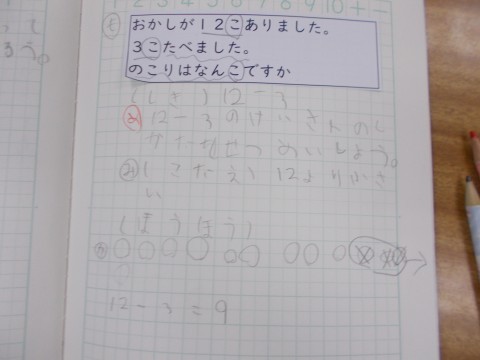 1 2 3 4 5 6 7 8 9 10 + −
も おかしが12こありました。
3こたべました。
のこりはなんこですか
(しき) 12-3
め 12-3のけいさんのし
かたをせつめいしよう。
み (こたえ) 12より小さ
い
(ほうほう)
12-3=9